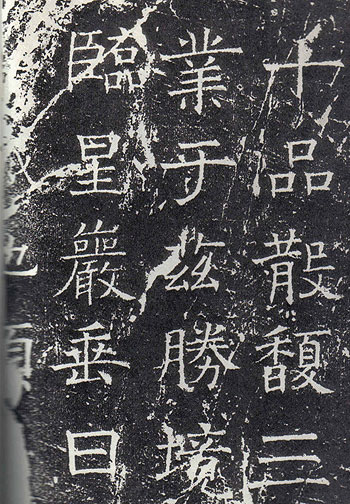 十品散馥三
業于茲勝境
臨星巖垂日